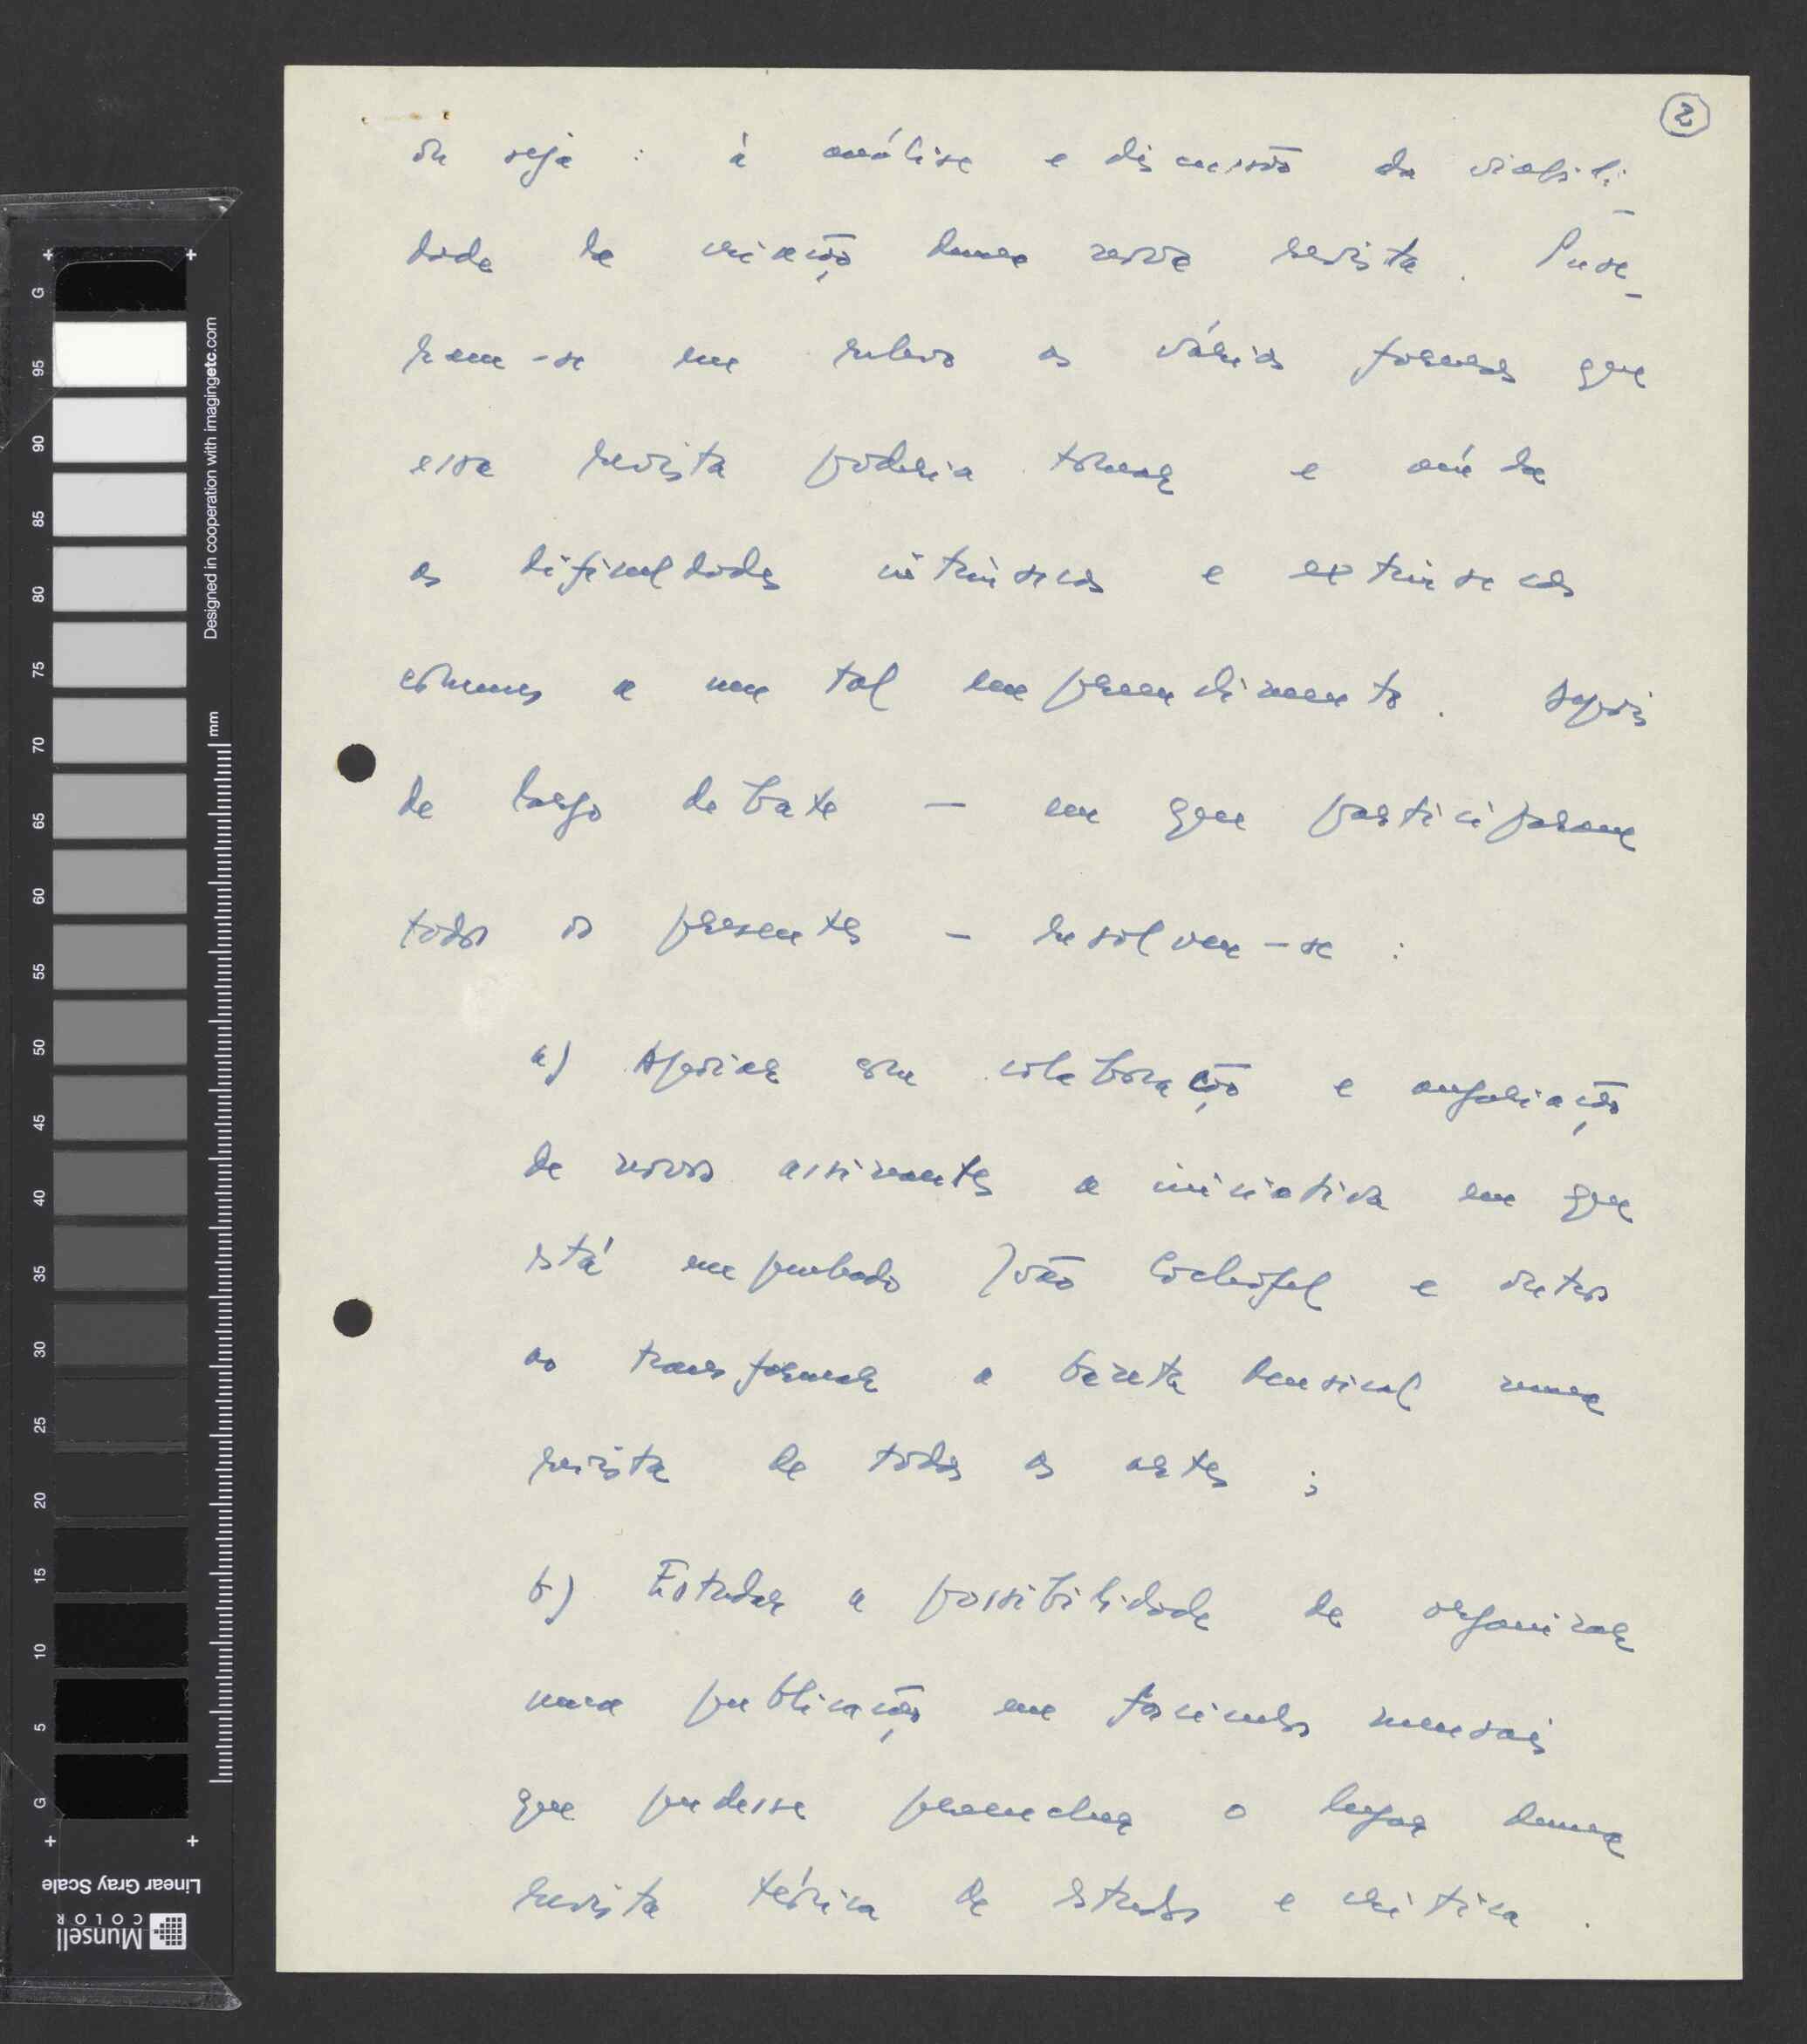 2
ou seja : à análise e discussão da viabili-
dade da criação duma nova revista. Puse-
ram-se em relevo as várias formas que
essa revista poderia tomar e ainda
as dificuldades intrínsecas e extrínsecas
comuns a um tal empreendimento. Depois
de largo debate — em que participaram
todos os presentes — resolveu-se :
a) Apoiar com colaboração e angariação
de novos assinantes a iniciativa em que
está empenhado João Cochofel e outros
ao transformar a Gazeta Musical numa
revista de todas as artes ;
b) Estudar a possibilidade de organizar
uma publicação em fascículos mensais
que pudesse preencher o lugar duma
revista teórica de estudos e crítica .
G
95
90
85
80
75
70
65
60
55
50
45
40
35
30
25
20
15
10
5
G
mm
Designed in cooperation with imagingetc.com
Linear Gray Scale
Munsell
COLOR